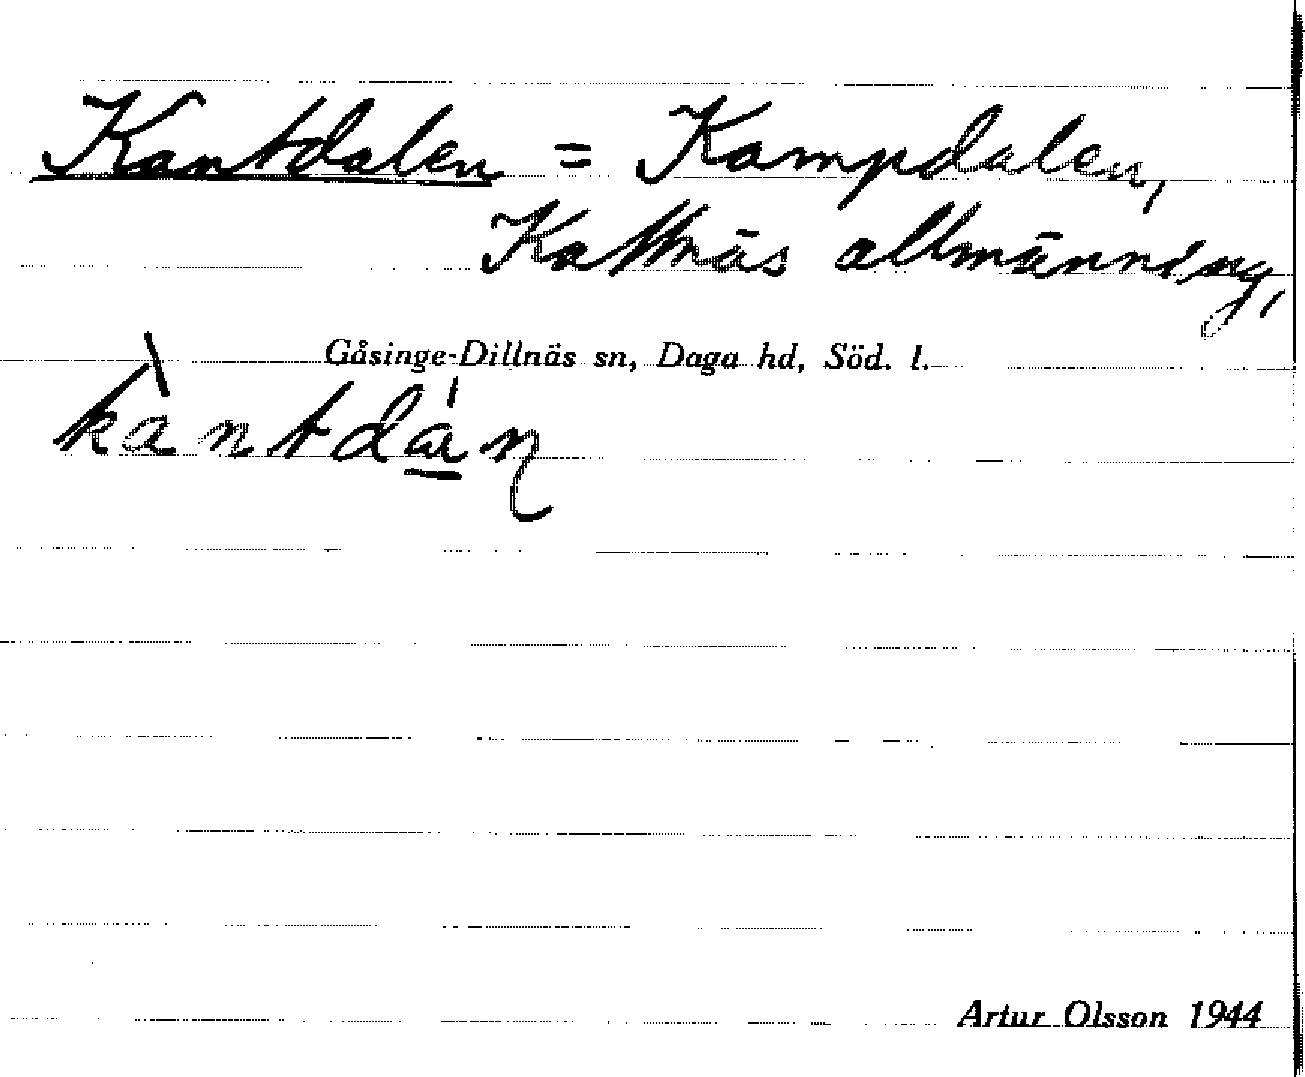 Kantdalen = Kampdalen,
Kattnäs allmänning,
Gåsinge-Dillnäs sn, Daga hd, Söd. l.
kàntdán
Artur Olsson 1944